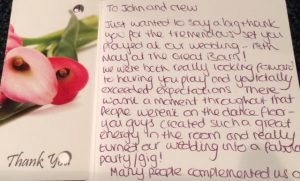 To John and crew
Just wanted to say a big thank
you for the tremendous set you
played at our wedding - 15th
May at the Great Barn!
We were both really looking forward
to having you play and you totally
exceeded expectations. There
wasn't a moment throughout that
people weren't on the dance floor -
you guys created such a great
energy in the room and really
turned our wedding into a fabulous
party/gig!
Many people complemented us o
Thank You